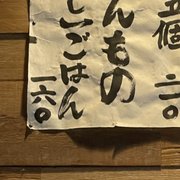 五個 二〇
んもの
しごはん 一六〇